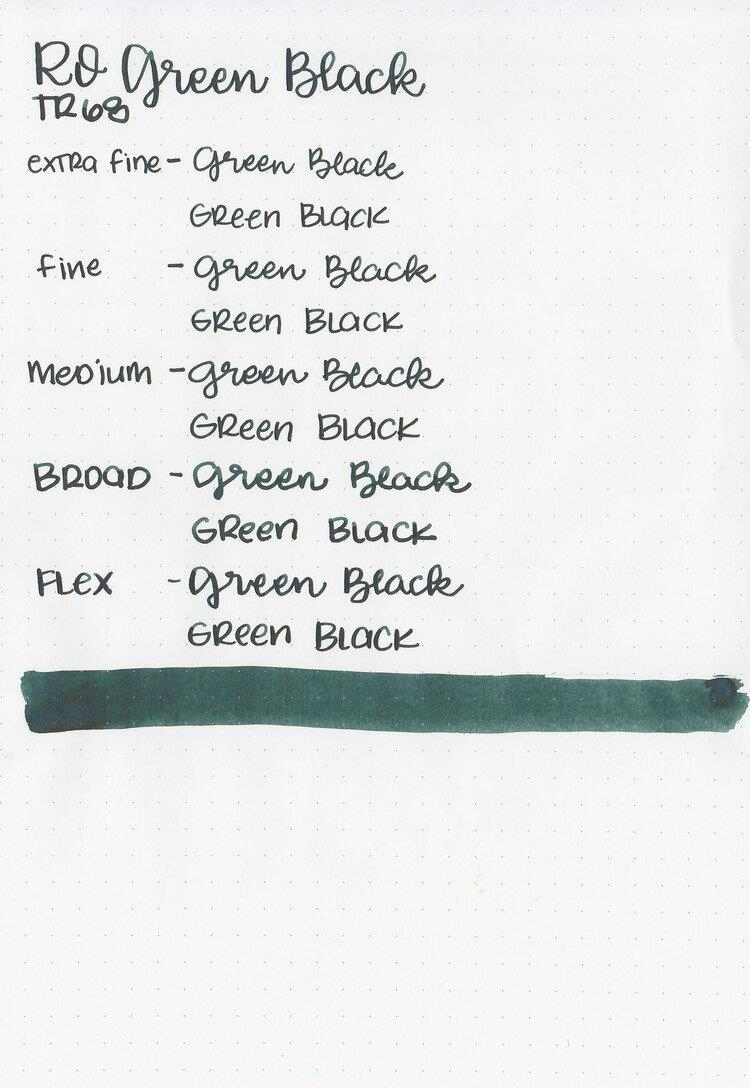 RO Green Black
TR68
extra fine - Green Black
Green Black
fine - Green Black
Green Black
Medium - Green Black
Green Black
Broad - Green Black
Green Black
Flex - Green Black
Green Black